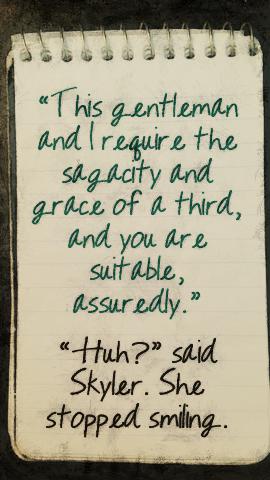 “This gentleman
and I require the
sagacity and
grace of a third,
and you are
suitable,
assuredly.”
“Huh?” said
Skyler. She
stopped smiling.